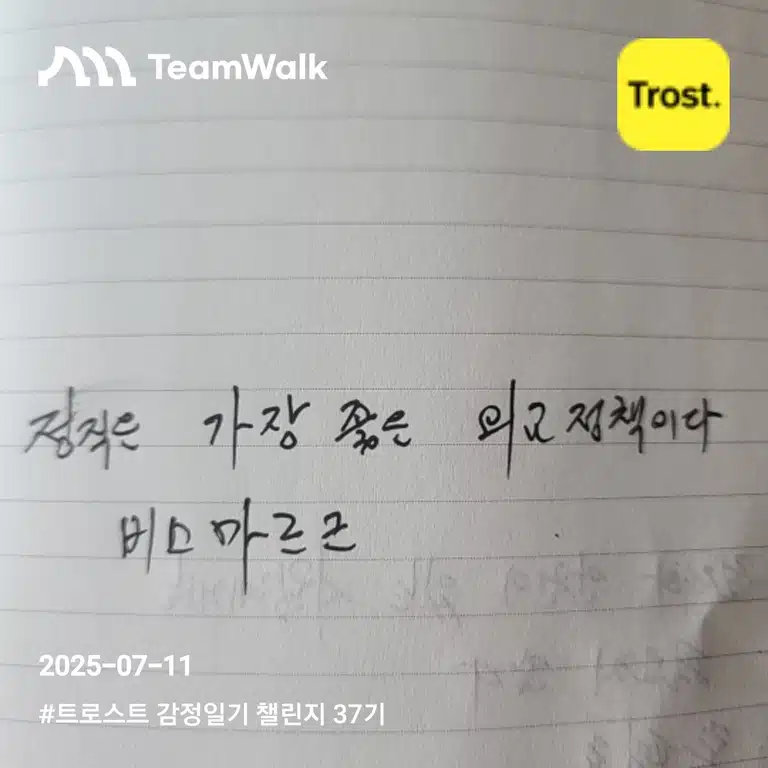 TeamWalk
Trost.
정직은 가장 좋은 외교 정책이다
비스마르크
2025-07-11
#트로스트 감정일기 챌린지 37기